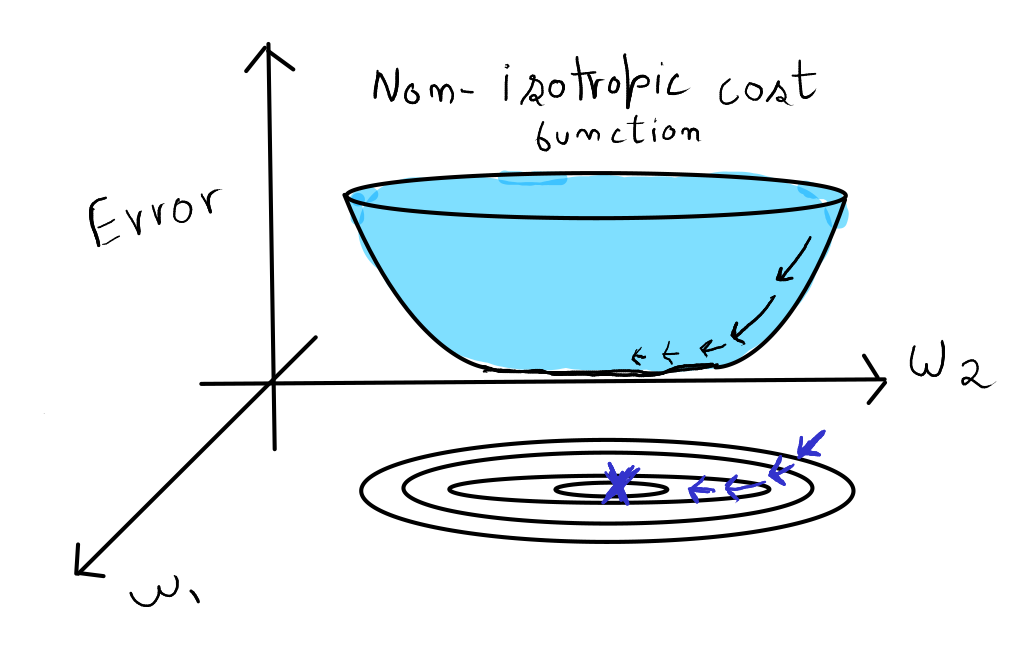 Non-isotropic cost
function
Error
W2
w1